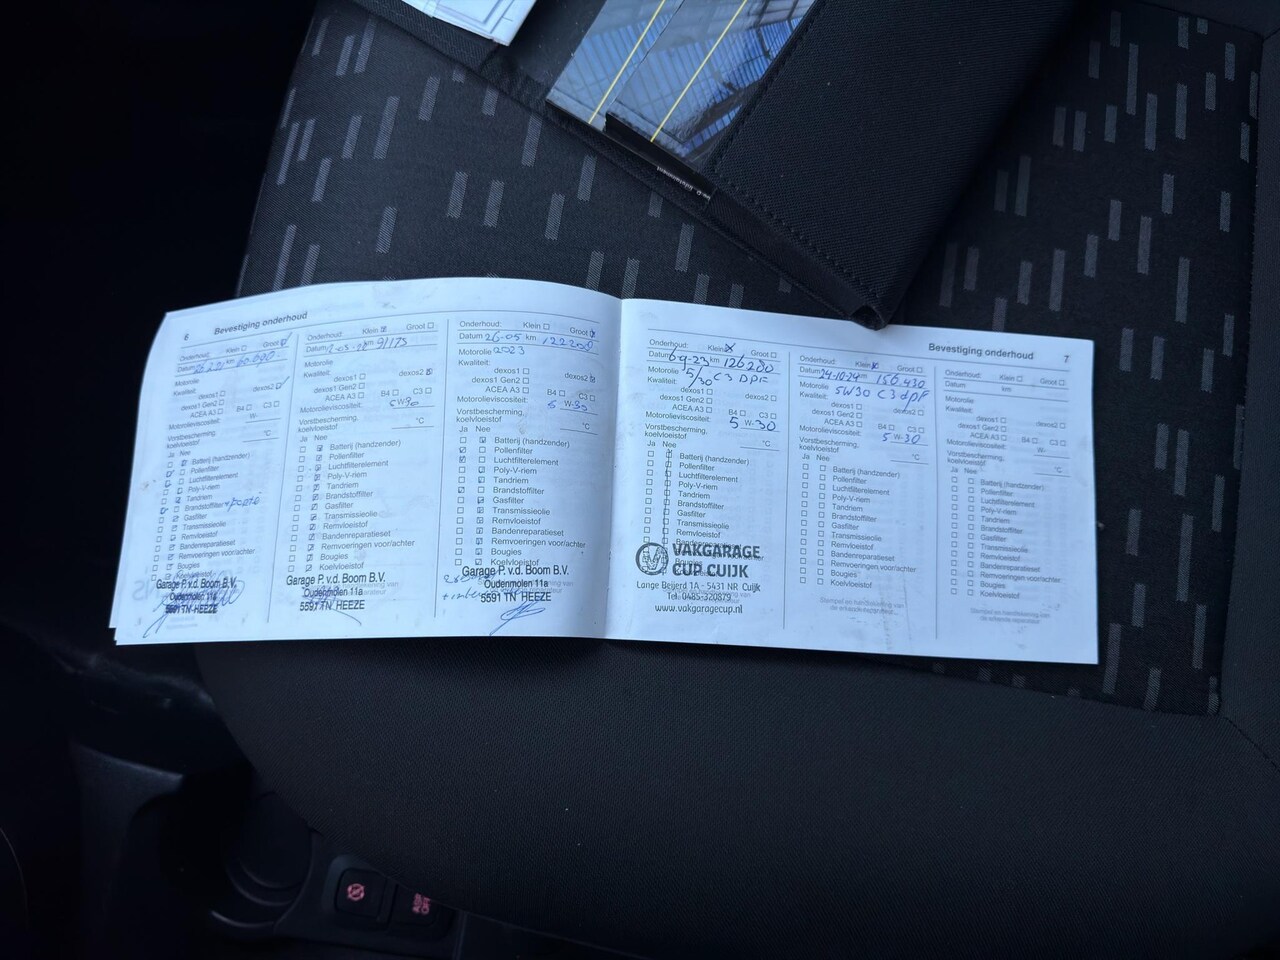 6
Bevestiging onderhoud
Onderhoud: Klein Groot
Datum km
Motorolie
Kwaliteit:
dexos1
dexos2
dexos1 Gen2
ACEA A3 B4 C3
W-
Vorstbescherming,
koelvloeistof °C
Ja Nee
Batterij (handzender)
Pollenfilter
Luchtfilterelement
Poly-V-riem
Tandriem
Brandstoffilter
Gasfilter
Transmissieolie
Remvloeistof
Bandenreparatieset
Remvoeringen voor/achter
Bougies
Garage P. v.d. Boom B.V.
Oudenmolen 11a
5591 TN HEEZE
Onderhoud: Klein Groot
Datum km 91175
Motorolie
Kwaliteit:
dexos1
dexos2
dexos1 Gen2
ACEA A3 B4 C3
Motorolieviscositeit:
Vorstbescherming,
koelvloeistof °C
Ja Nee
Batterij (handzender)
Pollenfilter
Luchtfilterelement
Poly-V-riem
Tandriem
Brandstoffilter
Gasfilter
Transmissieolie
Remvloeistof
Bandenreparatieset
Remvoeringen voor/achter
Bougies
Koelvloeistof
Garage P. v.d. Boom B.V.
Oudenmolen 11a
5591 TN HEEZE
Onderhoud: Klein Groot
Datum 26-05 km 122200
Motorolie 2023
Kwaliteit:
dexos1
dexos2
dexos1 Gen2
ACEA A3 B4 C3
Motorolieviscositeit: 5 W-30
Vorstbescherming,
koelvloeistof °C
Ja Nee
Batterij (handzender)
Pollenfilter
Luchtfilterelement
Poly-V-riem
Tandriem
Brandstoffilter
Gasfilter
Transmissieolie
Remvloeistof
Bandenreparatieset
Remvoeringen voor/achter
Bougies
Koelvloeistof
Garage P. v.d. Boom B.V.
Oudenmolen 11a
5591 TN HEEZE
Bevestiging onderhoud
7
Onderhoud: Klein Groot
Datum 6 9-23 km 126280
Motorolie 5/30 C3 DPF
Kwaliteit:
dexos1
dexos2
dexos1 Gen2
ACEA A3 B4 C3
Motorolieviscositeit: 5 W-30
Vorstbescherming,
koelvloeistof °C
Ja Nee
Batterij (handzender)
Pollenfilter
Luchtfilterelement
Poly-V-riem
Tandriem
Brandstoffilter
Gasfilter
Transmissieolie
Remvloeistof
VAKGARAGE
CUP CUIJK
Lange Beijerd 1A - 5431 NR Cuijk
Tel. 0485-320879
www.vakgaragecup.nl
Onderhoud: Klein Groot
Datum 24-10-24 km 156.430
Motorolie 5W30 C3 dPF
Kwaliteit:
dexos1
dexos2
dexos1 Gen2
ACEA A3 B4 C3
Motorolieviscositeit: 5 W-30
Vorstbescherming,
koelvloeistof °C
Ja Nee
Batterij (handzender)
Pollenfilter
Luchtfilterelement
Poly-V-riem
Tandriem
Brandstoffilter
Gasfilter
Transmissieolie
Remvloeistof
Bandenreparatieset
Remvoeringen voor/achter
Bougies
Koelvloeistof
Stempel en handtekening van
de erkende reparateur
Onderhoud: Klein Groot
Datum km
Motorolie
Kwaliteit:
dexos1
dexos2
dexos1 Gen2
ACEA A3 B4 C3
Motorolieviscositeit: W-
Vorstbescherming,
koelvloeistof °C
Ja Nee
Batterij (handzender)
Pollenfilter
Luchtfilterelement
Poly-V-riem
Tandriem
Brandstoffilter
Gasfilter
Transmissieolie
Remvloeistof
Bandenreparatieset
Remvoeringen voor/achter
Bougies
Koelvloeistof
Stempel en handtekening van
de erkende reparateur
OFF